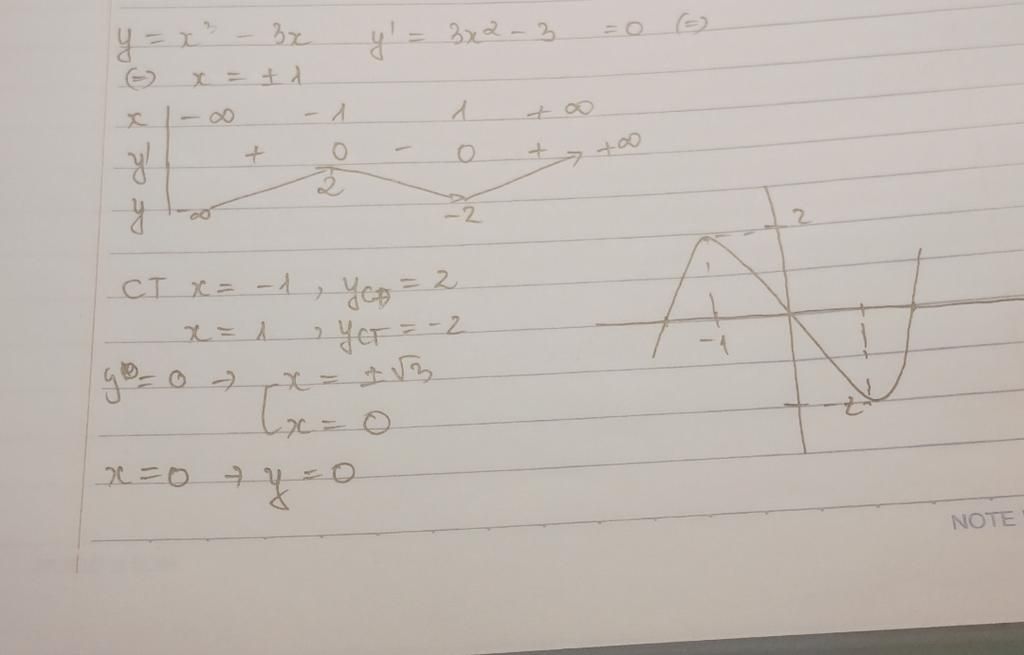 y = x³ - 3x y' = 3x² - 3 = 0 (=)
(=) x = ± 1
x | -∞ -1 1 +∞
y' | + 0 - 0 + +∞
y | -∞ 2 -2
CT x = -1 , yCĐ = 2
x = 1 , yCT = -2
y = 0 → x = ±√3
x = 0
x = 0 → y = 0
2
-1
NOTE